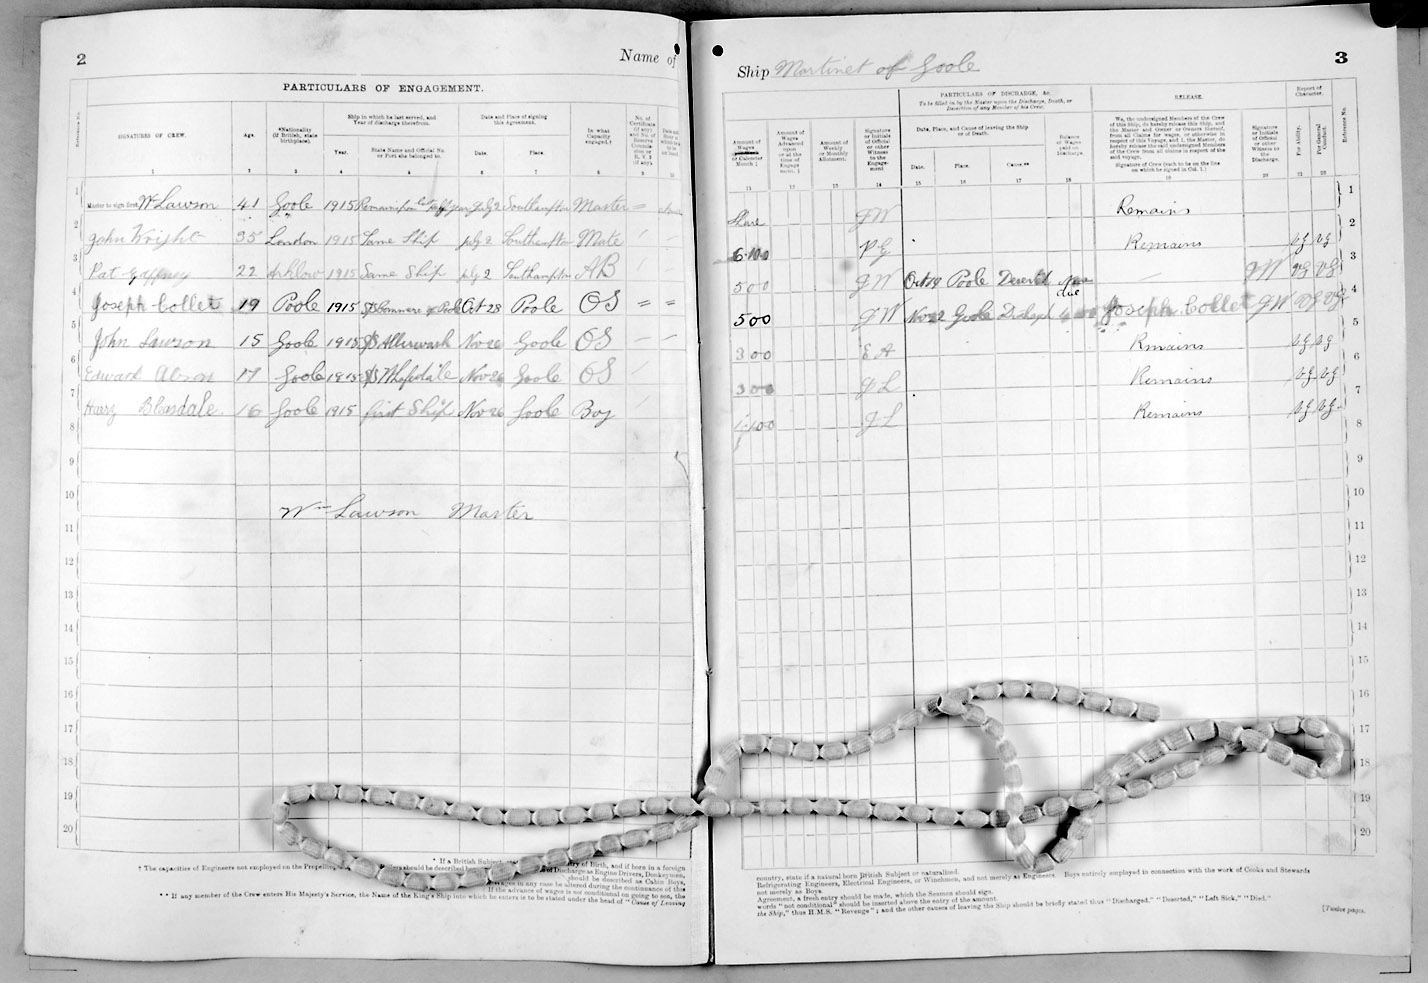 2
Name of
PARTICULARS OF ENGAGEMENT.
Reference No.
SIGNATURES OF CREW.
Age.
*Nationality
(if British, state
birthplace).
Ship in which he last served, and
Year of discharge therefrom.
Year.
State Name and Official No.
or Port she belonged to.
Date and Place of signing
this Agreement.
Date.
Place.
In what
Capacity
engaged.†
No. of
Certificate
(if any)
1 2 3 4 5 6 7 8 9 10
1 Master to sign first. Wm Lawson 41 Goole 1915 Remains from last half year July 2 Southampton Master =
2 John Wright 35 London 1915 Same Ship July 2 Southampton Mate
3 Pat Gaffney 22 Arklow 1915 Same Ship July 2 Southampton AB
4 Joseph Collet 19 Poole 1915 Poole Oct 28 Poole OS = =
5 John Lawson 15 Goole 1915 Nov 26 Goole OS
6 Edward 17 Goole 1915 Nov 26 Goole OS
7 Harry Bleasdale 16 Goole 1915 first Ship Nov 26 Goole Boy
8
9
10
Wm Lawson Master
11
12
13
14
15
16
17
18
19
20
* If a British Subject, state
try of Birth, and if born in a foreign
† The capacities of Engineers not employed on the Propelling
Boilers should be described
of Discharge as Engine Drivers, Donkeymen,
should be described as Cabin Boys,
wages in any case be altered during the continuance of this
If the advance of wages is not conditional on going to sea, the
** If any member of the Crew enters His Majesty's Service, the Name of the King's Ship into which he enters is to be stated under the head of "Cause of Leaving
Ship Martinet of Goole
3
PARTICULARS OF DISCHARGE, &c.
To be filled in by the Master upon the Discharge, Death, or
Desertion of any Member of his Crew.
RELEASE.
Report of
Character.
Amount of
Wages
or Calendar
Month
Amount of
Wages
Advanced
upon
or at the
time of
Engagement.
Amount of
Weekly
or Monthly
Allotment.
Signature
or Initials
of Official
or other
Witness
to the
Engagement
Date, Place, and Cause of leaving the Ship
or of Death.
Date.
Place.
Cause.**
Balance
of Wages
paid on
Discharge.
We, the undersigned Members of the Crew
of this Ship, do hereby release this ship, and
the Master and Owner or Owners thereof,
from all Claims for wages, or otherwise in
respect of this Voyage, and I, the Master, do
hereby release the said undersigned Members
of the Crew from all claims in respect of the
said voyage.
Signature of Crew (each to be on the line
on which he signed in Col. 1.)
Signature
or Initials
of Official
or other
Witness to
the
Discharge.
For Ability.
For General
Conduct.
Reference No.
11 12 13 14 15 16 17 18 19 20 21 22
Share J W Remains 1
6.10.0 P G Remains VG VG 2
5 0 0 J W Oct 19 Poole Deserted None due — J W VG VG 3
5 0 0 J W Nov Goole Joseph. Collet J W VG VG 4
3 0 0 E A Remains VG VG 5
3 0 0 J L Remains VG VG 6
J L Remains VG VG 7
8
9
10
11
12
13
14
15
16
17
18
19
20
country, state if a natural born British Subject or naturalized.
Refrigerating Engineers, Electrical Engineers, or Winchmen, and not merely as Engineers. Boys entirely employed in connection with the work of Cooks and Stewards
not merely as Boys.
Agreement, a fresh entry should be made, which the Seaman should sign.
words "not conditional" should be inserted above the entry of the amount.
the Ship," thus H.M.S. "Revenge"; and the other causes of leaving the Ship should be briefly stated thus "Discharged," "Deserted," "Left Sick," "Died."
[Twelve pages.